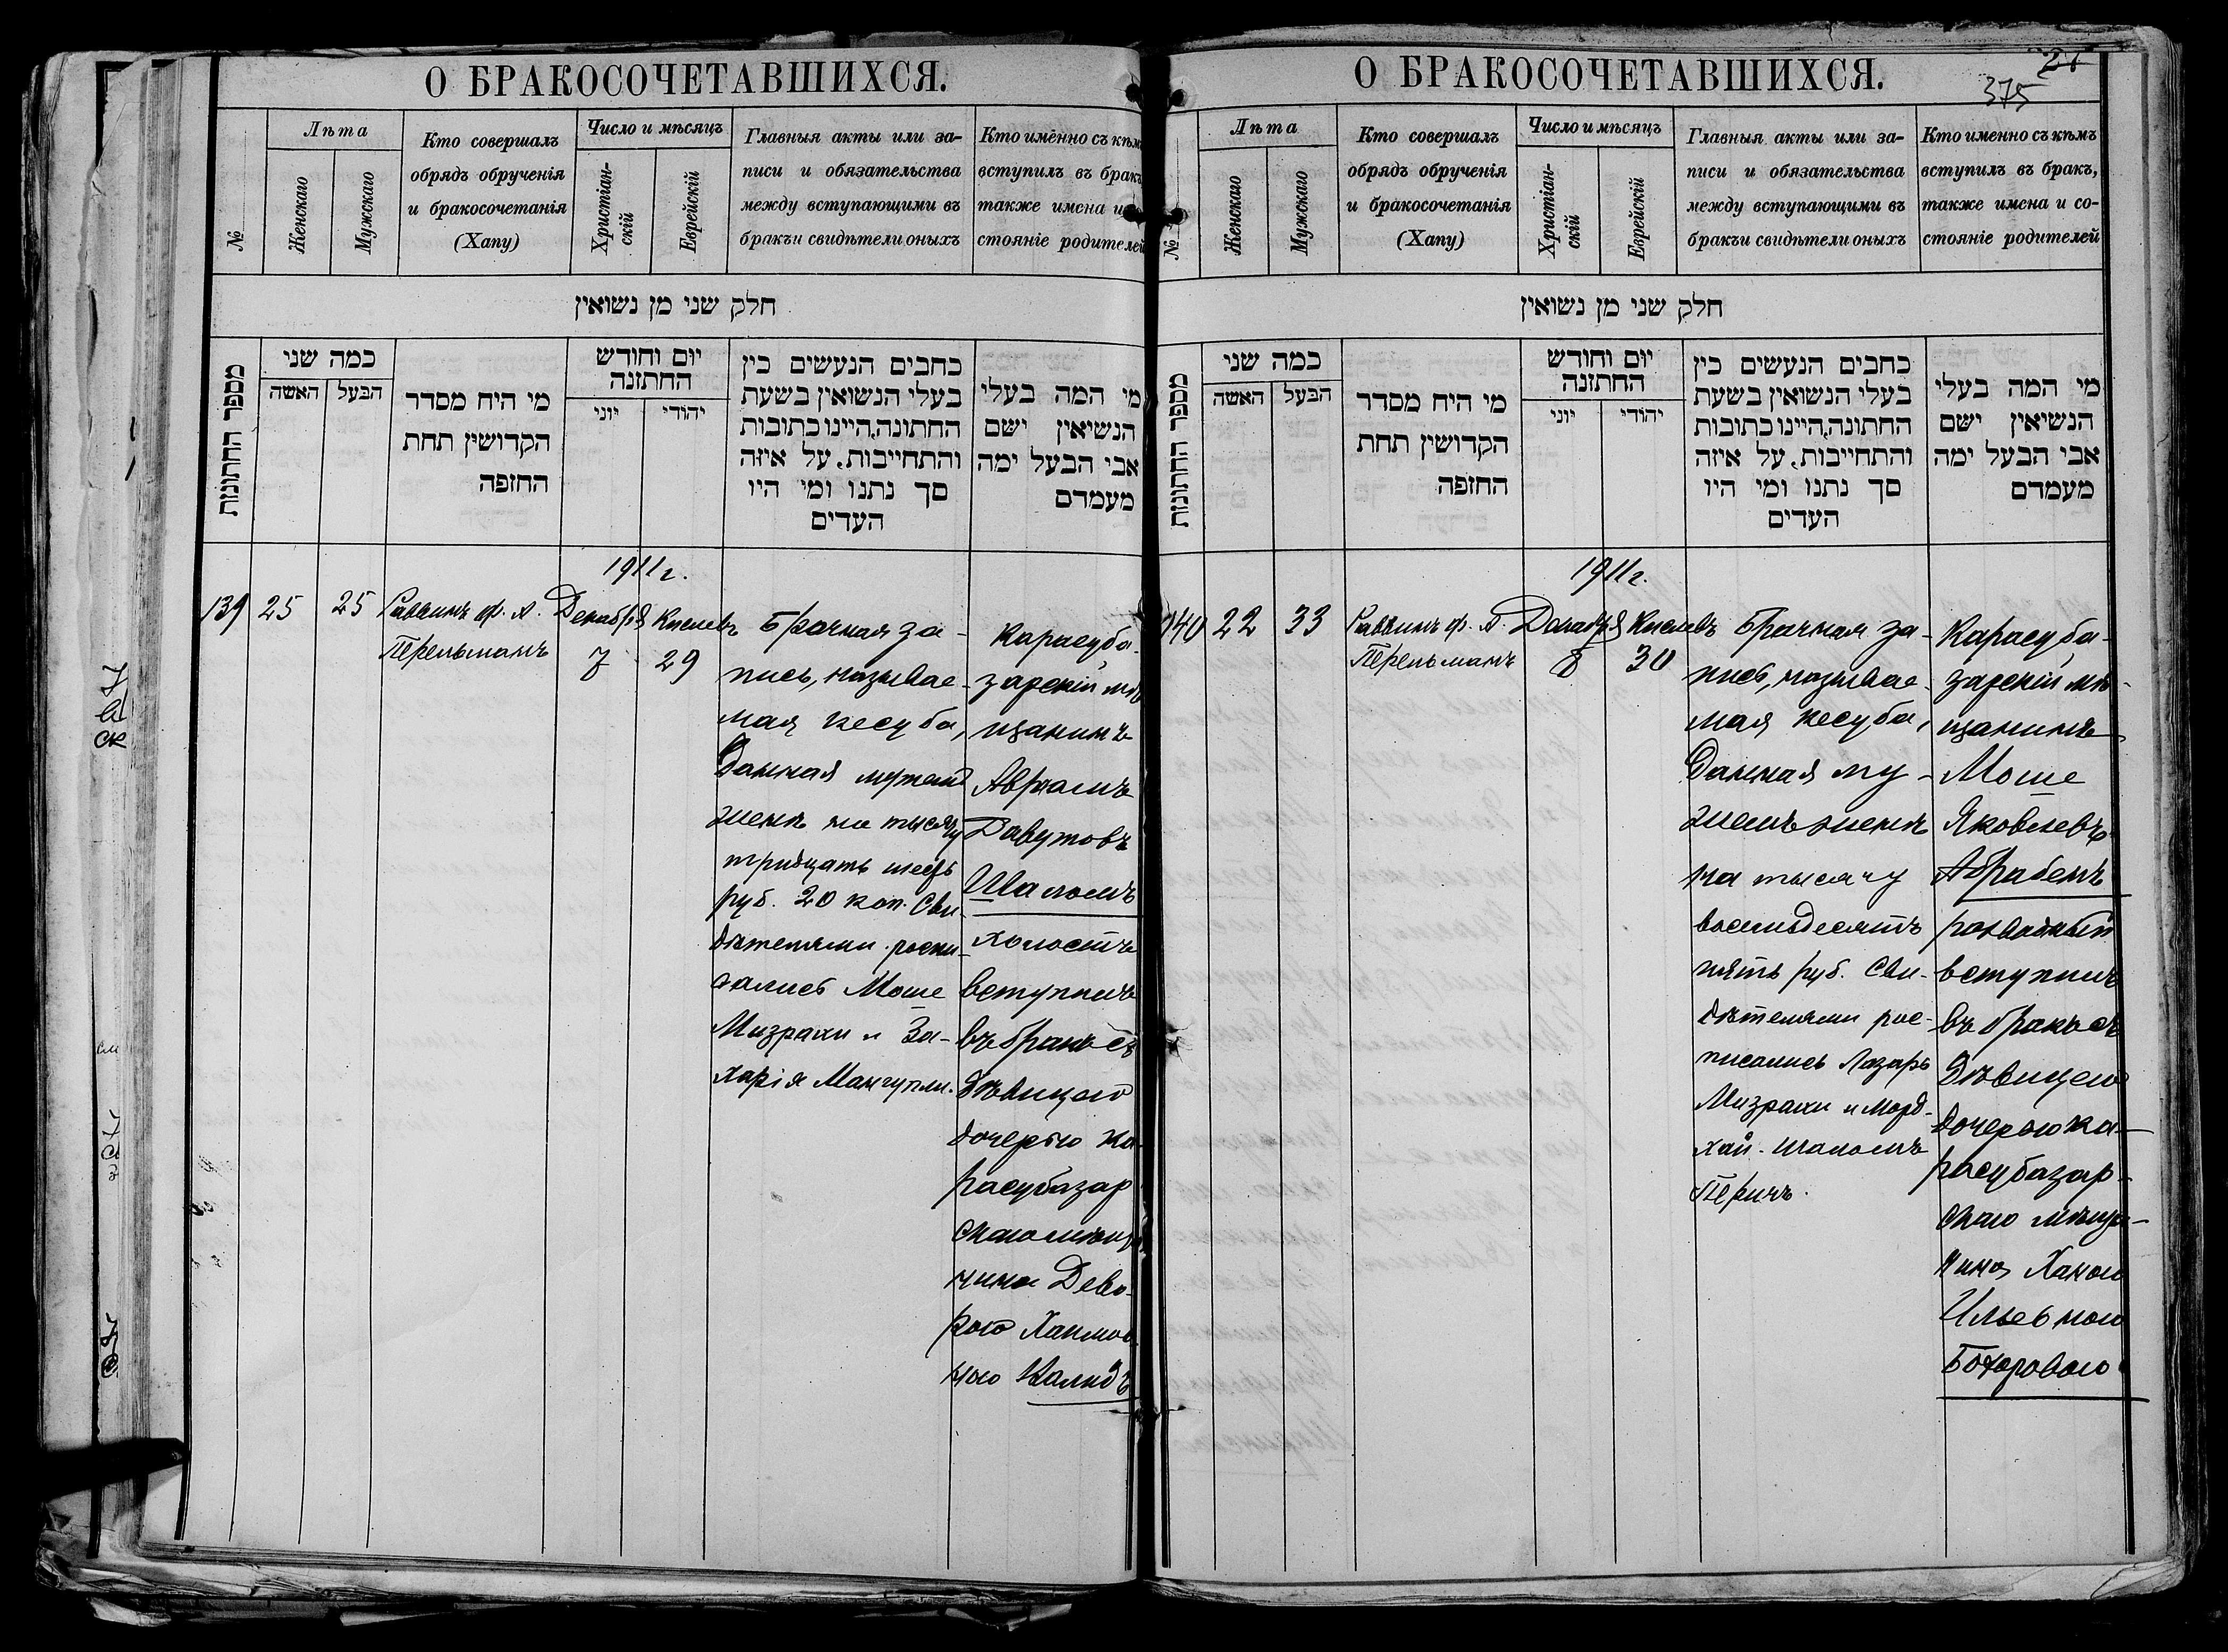 О БРАКОСОЧЕТАВШИХСЯ.
№
Лѣта
Женскаго
Мужскаго
Кто совершалъ
обрядъ обрученія
и бракосочетанія
(Хапу)
Число и мѣсяцъ
Христіан-
скій
Еврейскій
Главныя акты или за-
писи и обязательства
между вступающими въ
бракъ и свидѣтели оныхъ
Кто именно съ кѣмъ
вступилъ въ бракъ
также имена и
стояніе родителей
חלק שני מן נשואין
מספר החתונות
כמה שני
האשה
הבעל
מי היח מסדר
הקדושין תחת
החופה
יום וחודש
החתונה
יוני
יהודי
כחבים הנעשים בין
בעלי הנשואין בשעת
החתונה, היינו כתובות
והתחייבות, על איזה
סך נתנו ומי היו
העדים
מי המה בעלי
הנשיאין ישם
אבי הבעל ימה
מעמדם
1911 г.
139
25
25
Раввинъ Ф. А.
Перельманъ
Декабря
7
Кислевъ
29
Брачная за-
пись, называе-
мая кесуба,
данная мужемъ
женѣ на тысячу
тридцать шесть
руб. 20 коп. Сви-
дѣтелями роспи-
сались Моше
Мизрахи и За-
харія Мангупли.
Карасуба-
зарскій мѣ
щанинъ
Авраамъ
Давутовъ
Шаломъ
холостъ
вступилъ
въ бракъ съ
дѣвицею
дочерью ка-
расубазар
скаго мѣща
нина Дево-
рою Хаимов
ною Валидъ
О БРАКОСОЧЕТАВШИХСЯ.
27
375
№
Лѣта
Женскаго
Мужскаго
Кто совершалъ
обрядъ обрученія
и бракосочетанія
(Хапу)
Число и мѣсяцъ
Христіан-
скій
Еврейскій
Главныя акты или за-
писи и обязательства
между вступающими въ
бракъ и свидѣтели оныхъ
Кто именно съ кѣмъ
вступилъ въ бракъ,
также имена и со-
стояніе родителей
חלק שני מן נשואין
מספר החתונות
כמה שני
האשה
הבעל
מי היח מסדר
הקדושין תחת
החופה
יום וחודש
החתונה
יוני
יהודי
כחבים הנעשים בין
בעלי הנשואין בשעת
החתונה, היינו כתובות
והתחייבות, על איזה
סך נתנו ומי היו
העדים
מי המה בעלי
הנשיאין ישם
אבי הבעל ימה
מעמדם
1911 г.
140
22
33
Раввинъ Ф. А.
Перельманъ
Декабря
8
Кислевъ
30
Брачная за-
пись, называе-
мая кесуба,
данная му-
жемъ женѣ
на тысячу
восемьдесятъ
пять руб. Сви-
дѣтелями рос-
писались Лазарь
Мизрахи и Морд-
хай-Шаломъ
Перичъ.
Карасуба-
зарскій мѣ-
щанинъ
Моше
Яковлевъ
Абрабенъ
разводный
вступилъ
въ бракъ съ
дѣвицею
дочерью ка-
расубазар-
скаго мѣща-
нина Ханою
Ильевною
Бохоровою